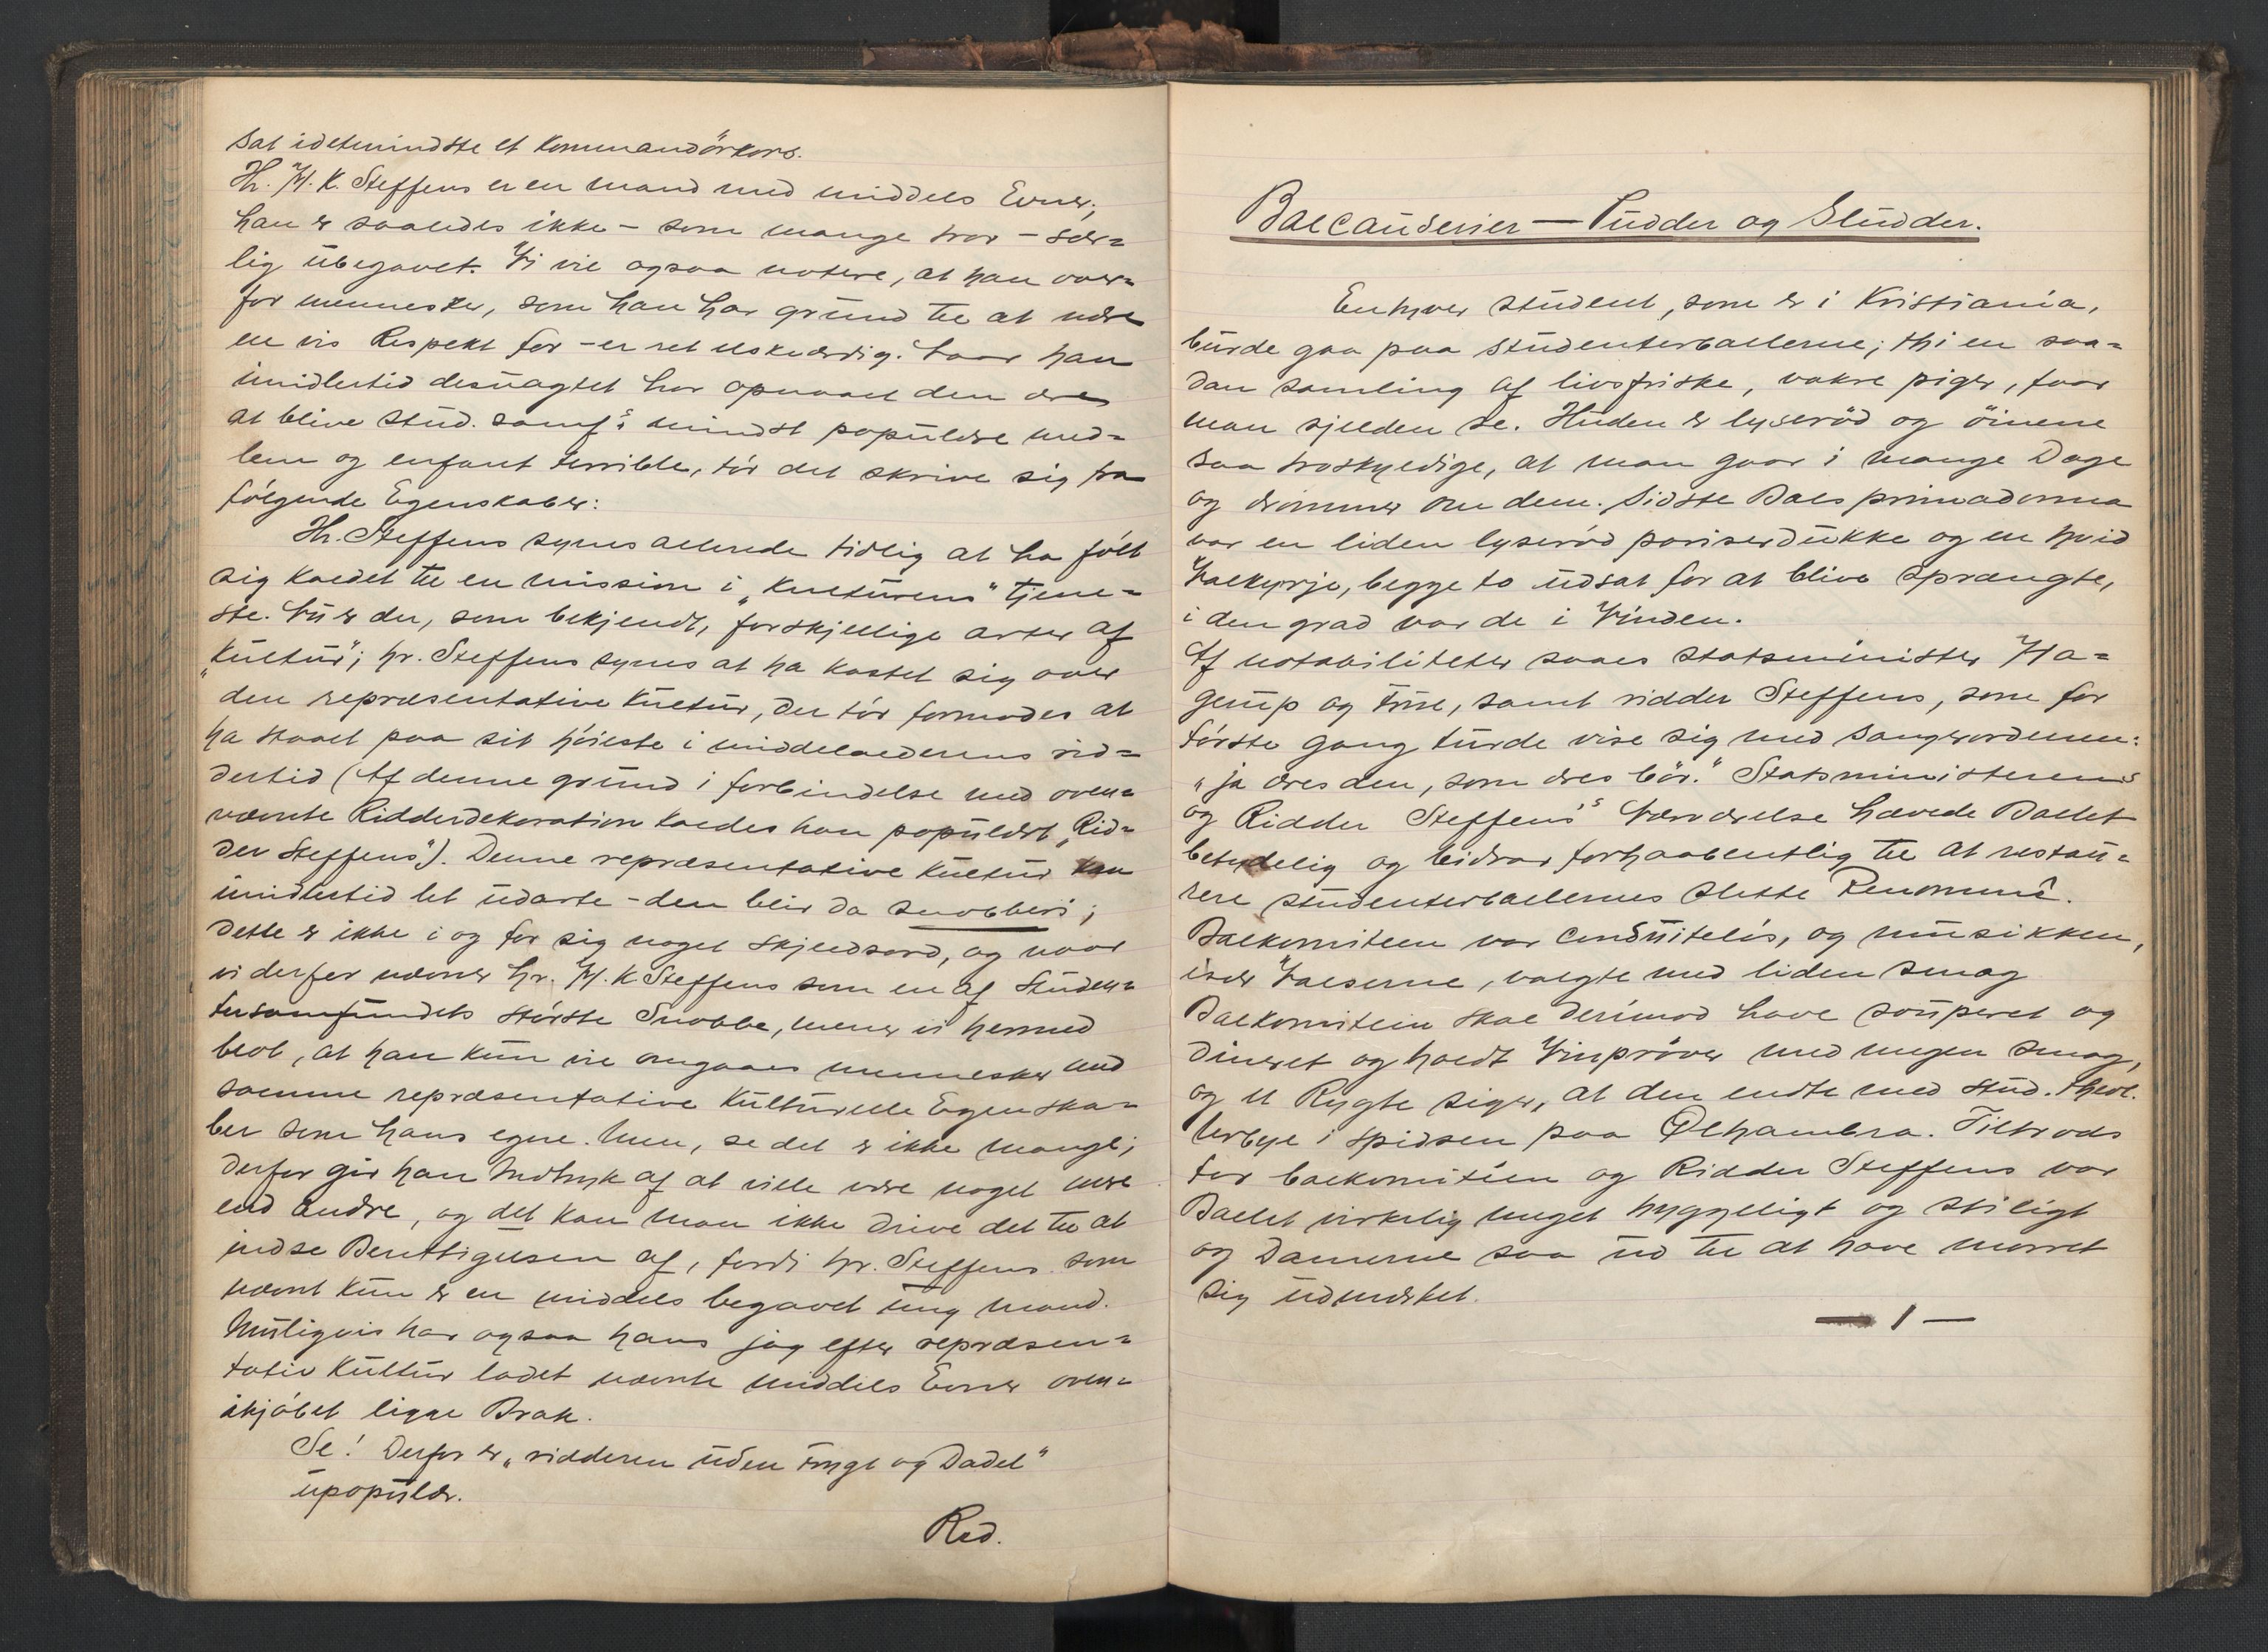 sat idetmindste et Kommandörkors.
Hr. H. K. Steffens er en mand med middels Evner;
han er saaledes ikke – som mange tror – sær=
lig übegavet. Vi vil ogsaa notere, at han over=
for mennesker, som han har gründ til at nære
en vis Respekt for – er ret elskværdig. Naar han
imidlertid desüagtet har opnaaet den ære
at blive stüd. samf.s mindst popülære med=
lem og enfant terrible, tör det skrive sig fra
fölgende Egenskaber:
Hr. Steffens synes allerede tidlig at ha fölt
sig kaldet til en mission i „Kulturens" Tjene=
ste. Nü er der, som bekjendt, forskjellige arter af
„Kültür"; hr. Steffens synes at ha kastet sig over
den repræsentative Kültür, der tör formodes at
ha staaet paa sit höieste i middelalderens rid=
dertid (Af denne gründ i forbindelse med oven=
nævnte Ridderdekoration kaldes han popülært „Rid=
der Steffens"). Denne repræsentative Kültür kan
imidlertid let üdarte – den blir da snobberi;
dette er ikke i og for sig noget skjeldsord, og naar
vi derfor nævner hr. H. K. Steffens som en af Stüden=
tersamfündets störste Snobbe, mener vi hermed
blot, at han kün vil omgaaes mennesker med
samme repræsentative kültürelle Egenska=
ber som hans egne. Men, se det er ikke mange;
derfor gir han Indtryk af at ville være noget mere
end andre, og det kan man ikke drive det til at
indse Berettigelsen af, fordi hr. Steffens som
nævnt kün er en middels begavet üng mand.
Müligvis har ogsaa hans jag efter repræsen=
tativ Kültür ladet nævnte middels Evner oven=
ikjöbet ligge Brak.
Se! Derfor er „ridderen üden Frygt og Dadel"
üpopülær.
Red.
Balcauserier — Pudder og Sludder.
Enhver stüdent, som er i Kristiania,
bürde gaa paa stüdenterballerne; thi en saa=
dan samling af livsfriske, vakre piger, faar
man sjelden se. Hüden er lyseröd og öinene
saa troskyldige, at man gaar i mange Dage
og drömmer om dem. Sidste Bals primadonna
var en liden lyseröd pariserdükke og en hvid
Valkyrje, begge to üdsat for at blive sprængte,
i den grad var de i Vinden.
Af notabiliteter saaes statsminister Ha=
gerüp og Frue, samt ridder Steffens, som for
förste gang türde vise sig med Sangerordenen:
„ja æres den, som æres bör." Statsministerens
og Ridder Steffens's Nærværelse hævede Ballet
betydelig og bidrar forhaabentlig til at restaü=
rere stüdenterballernes slette Renommé.
Balkomiteen var condüitelös, og müsikken,
især Valserne, valgte med liden smag
Balkomiteen skal derimod have soüperet og
dineret og holdt Vinpröver med megen smag,
og et Rygte siger, at den endte med stüd. theol.
Nerbye i spidsen paa Ølhambra. Tiltrods
for balkomitéen og Ridder Steffens var
Ballet virkelig meget hyggeligt og stiligt
og Damerne saa üd til at have moret
sig üdmærket.
— 1 —